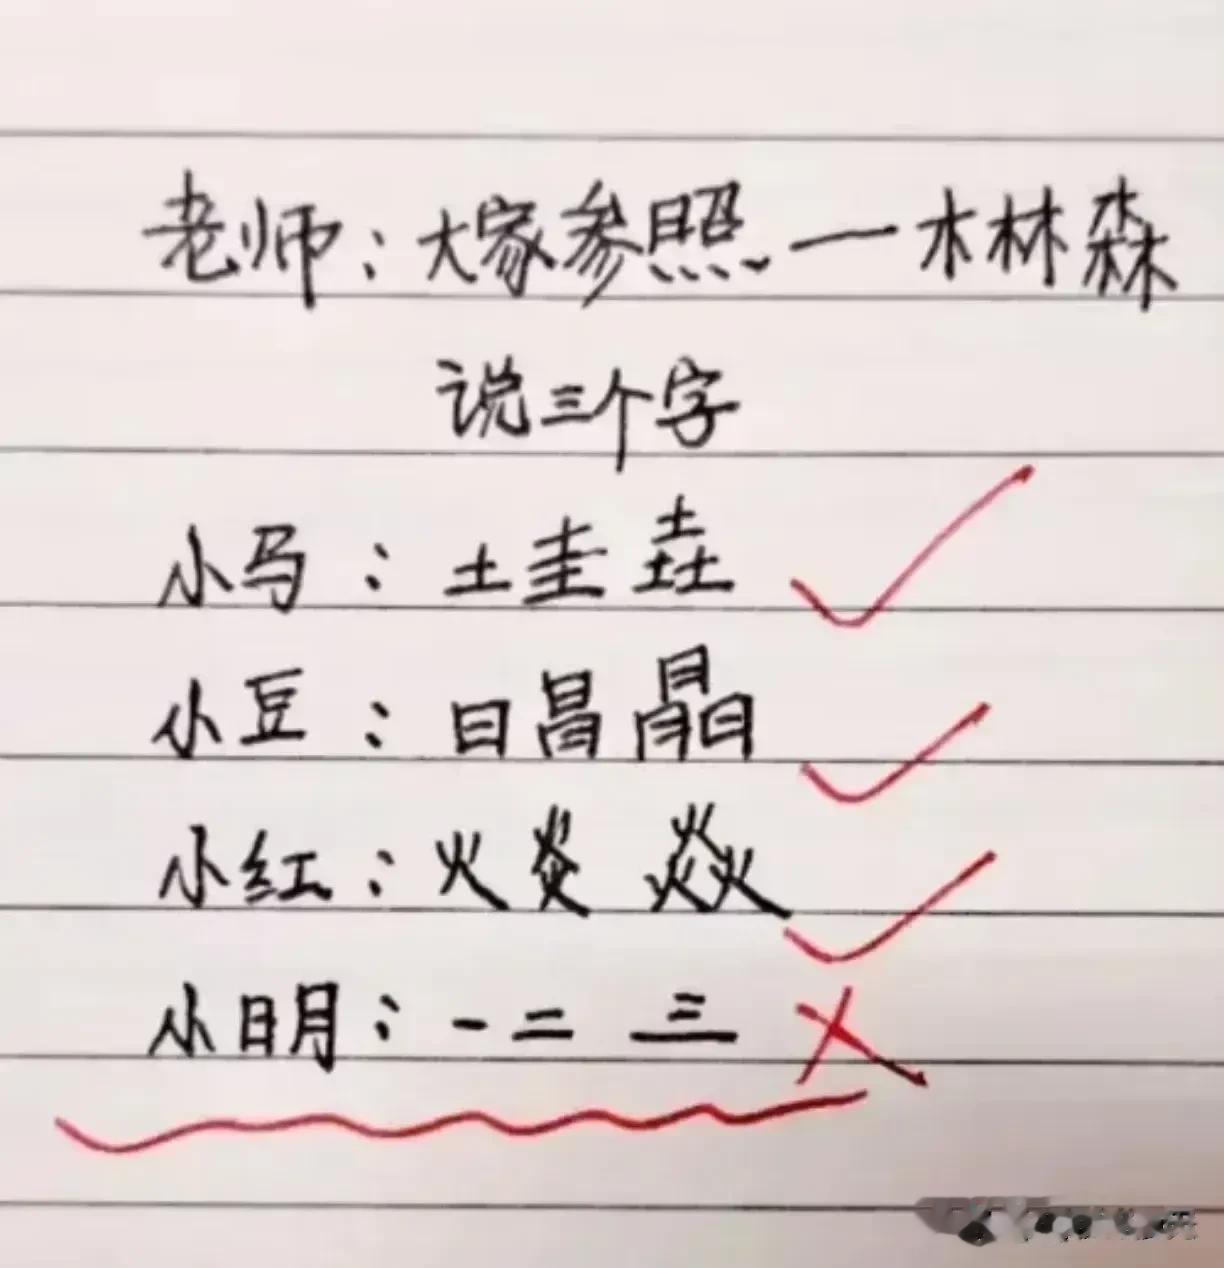 老师：大家参照一木林森
说三个字
小马：土圭垚
小豆：日昌晶
小红：火炎焱
小明：一二三